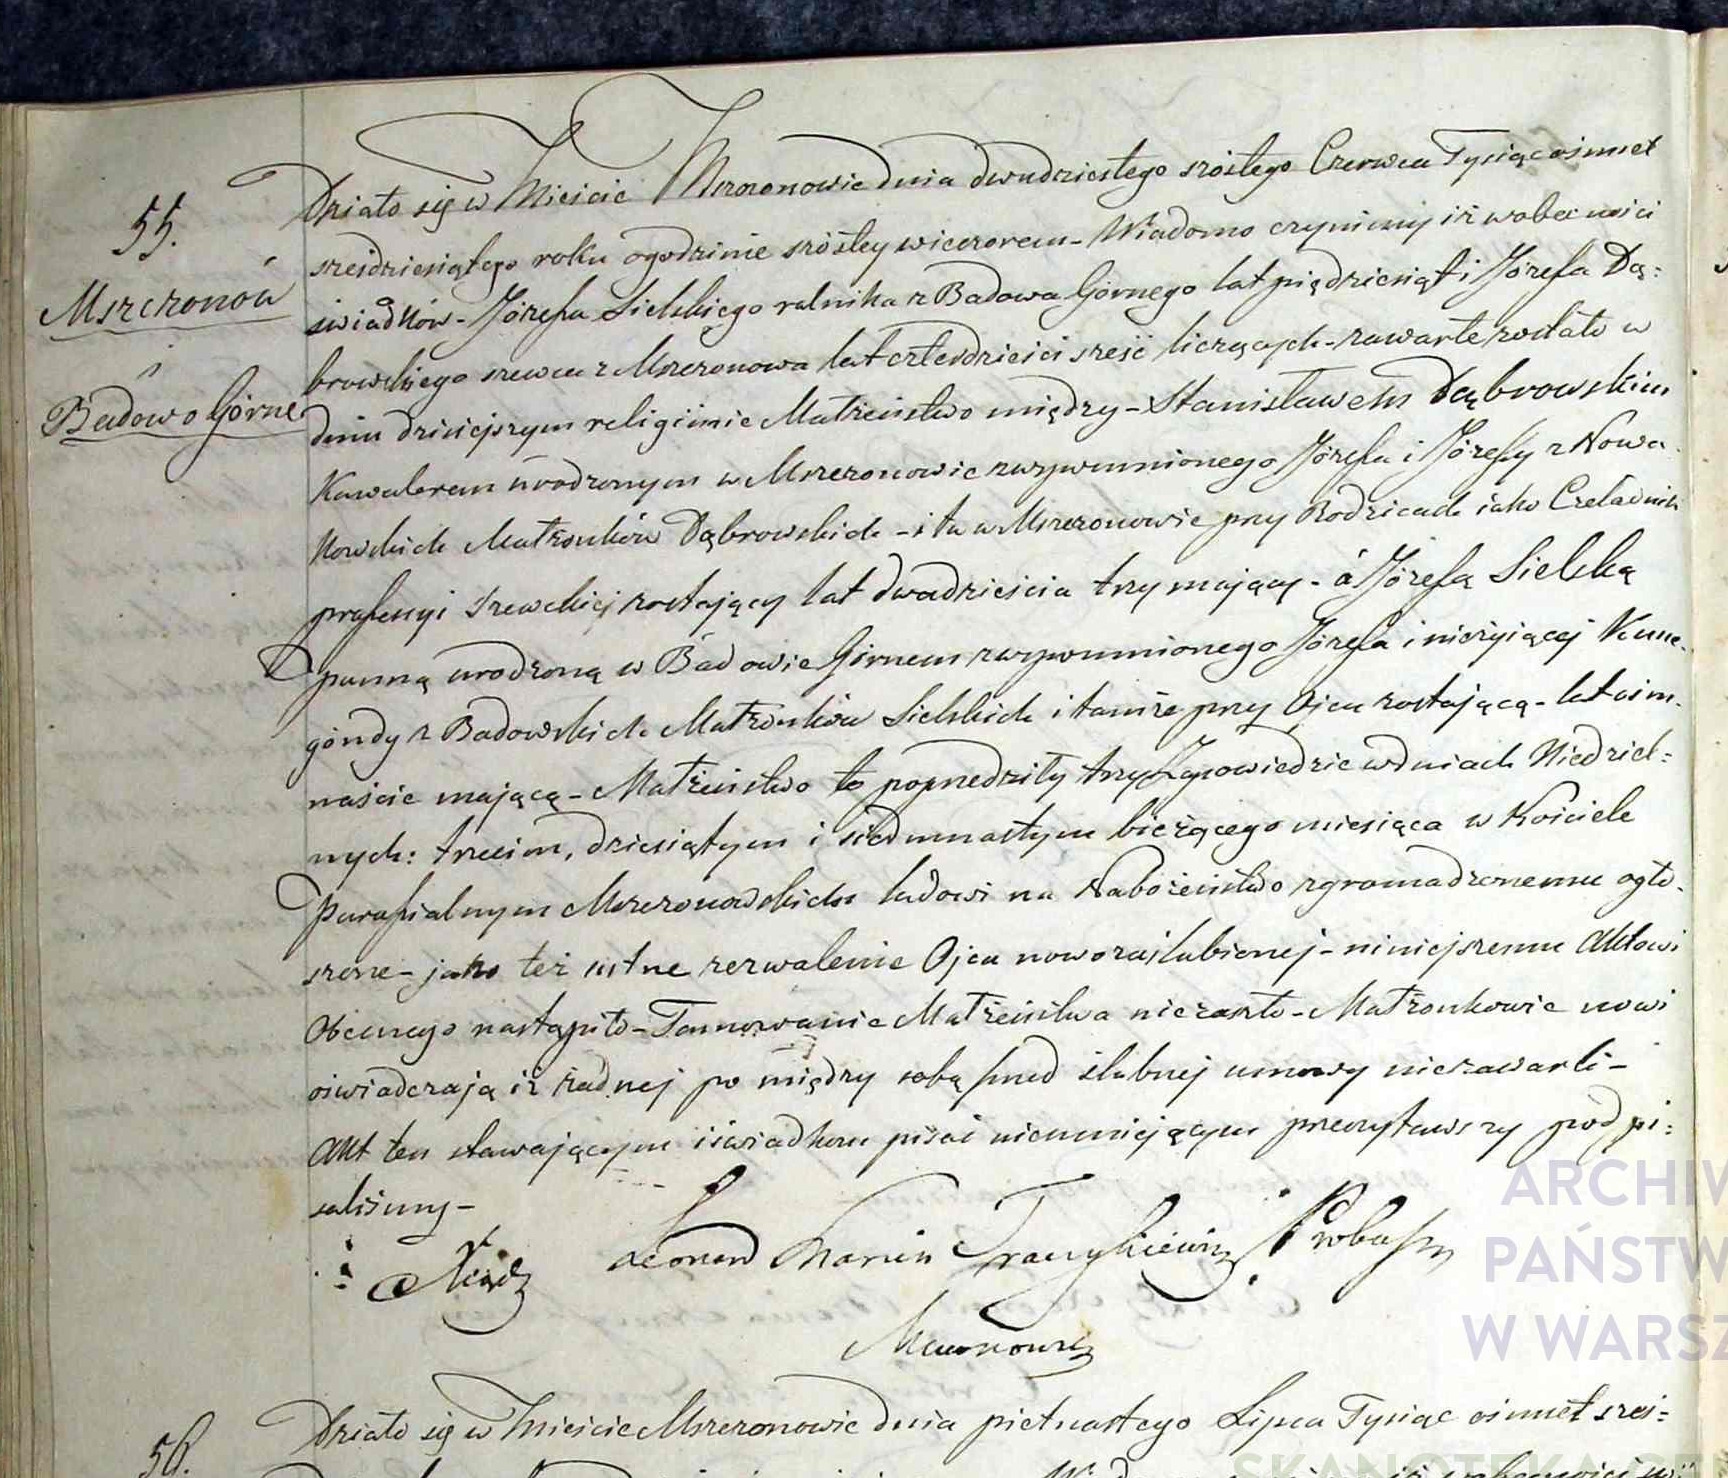 55.
Mszczonów
i
Badowo Górne
Działo się w Mieście Mszczonowie dnia dwudziestego szóstego Czerwca Tysiąc ośmset
sześdziesiątego roku o godzinie szóstey wieczorem - Wiadomo czyniemy iż w obecności
świadków - Józefa Sielskiego rolnika z Badowa Górnego lat piędziesiąt i Józefa Dą:
browskiego szewca z Mszczonowa lat czterdzieści sześć liczących - zawarte zostało w
dniu dzisiejszym religijnie Małżeństwo między - Stanisławem Dąbrowskim
Kawalerem urodzonym w Mszczonowie z wzpomnionego Józefa i Józefy z Nowa-
kowskich Małżonków Dąbrowskich - i tu w Mszczonowie przy Rodzicach iako Czeladnik
profesyi szewckiej zostający lat dwadzieścia trzy mający - á Józefą Sielską
panną urodzoną w Badowie Górnem z wzpomnionego Józefa i nieżyiącej Kune-
gondy z Badowskich Małżonków Sielskich i tamże przy Ojcu zostającą - lat ośm-
naście mającą - Małżeństwo to poprzedziły trzy Zapowiedzie w dniach Niedziel=
nych: trzecim, dziesiątym i siedmnastym bieżącego miesiąca w Kościele
Parafialnym Mszczonowskim ludowi na Nabożeństwo zgromadzonemu ogło-
szone - jako też ustne zezwolenie Ojca nowozaślubionej - niniejszemu Aktowi
Obecnego nastąpiło - Tamowanie Małżeństwa niezaszło - Małżonkowie nowi
oświadczają iż żadnej po między sobą przed ślubnej umowy niezawarli -
Akt ten stawającym i świadkom pisać nieumiejącym przeczytawszy podpi:
saliśmy -
Xiądz Leonard Marcin Proboszcz
Mszczonowski
56.
Działo się w Mieście Mszczonowie dnia pietnastego Lipca Tysiąc ośmset sześ=
ARCHIW
PAŃSTW
W WARSZ
SKANOTEKA